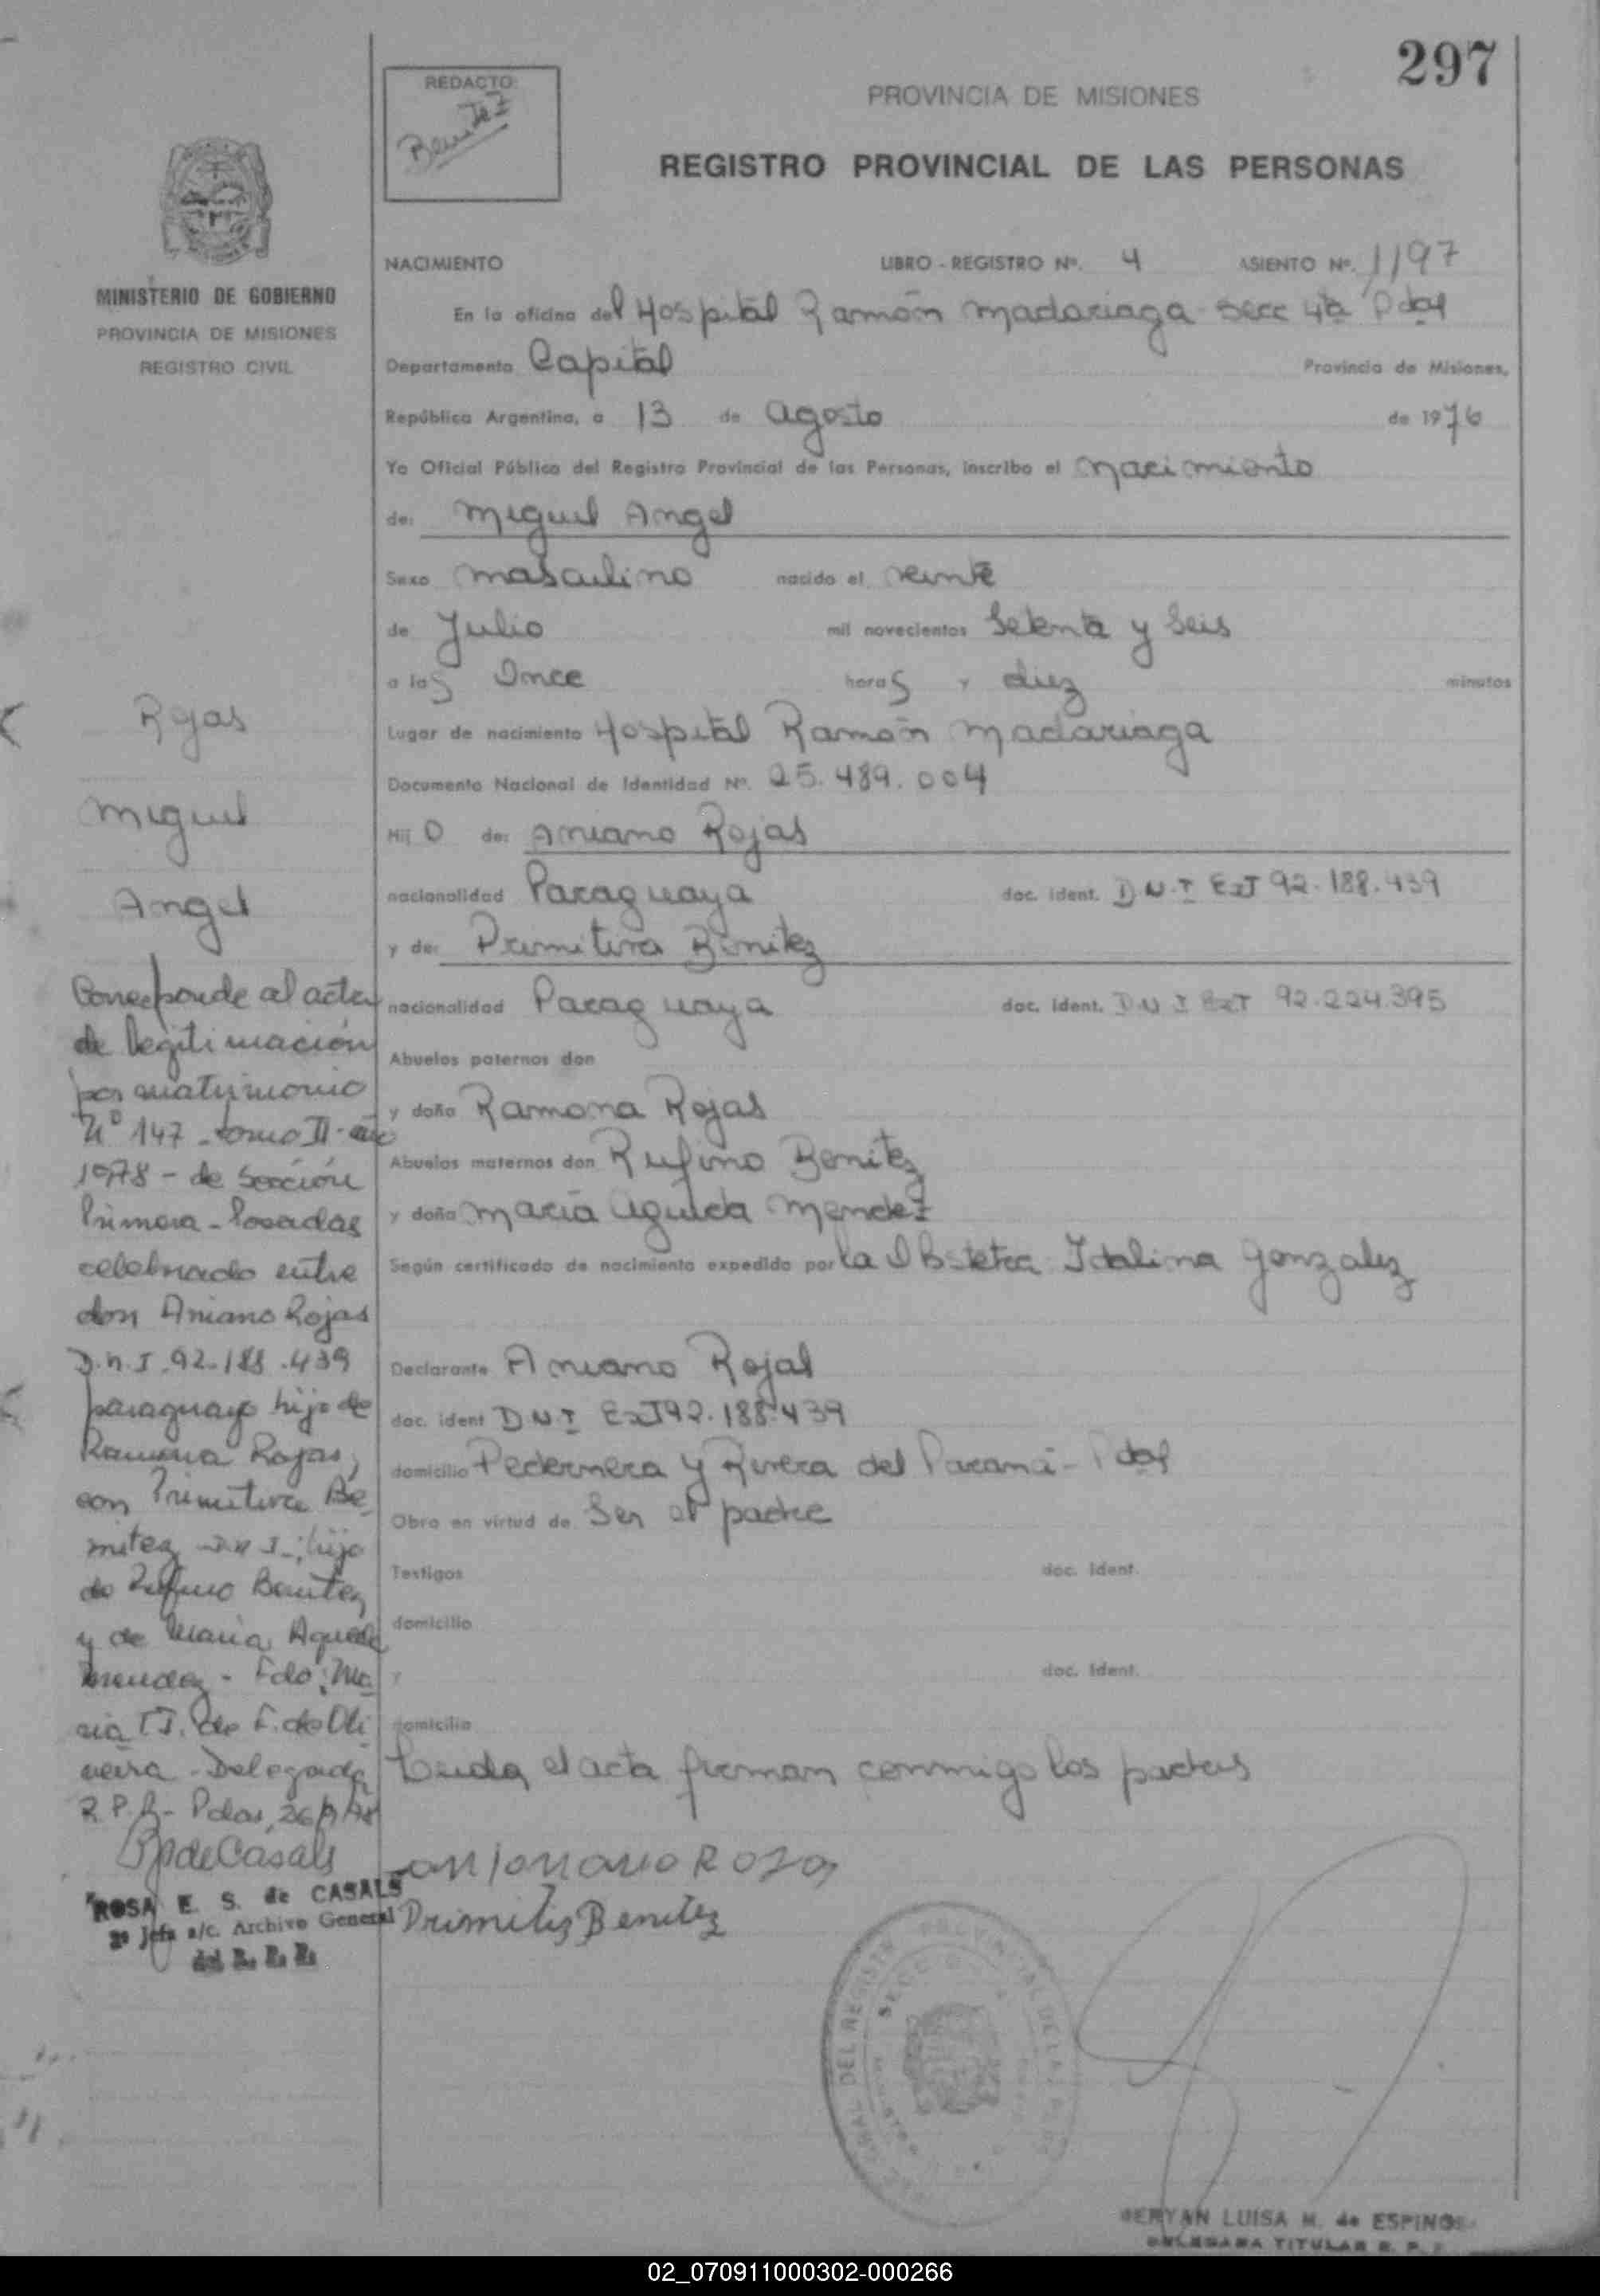 297
REDACTO:
Benitez
PROVINCIA DE MISIONES
REGISTRO PROVINCIAL DE LAS PERSONAS
MINISTERIO DE GOBIERNO
PROVINCIA DE MISIONES
REGISTRO CIVIL
NACIMIENTO LIBRO - REGISTRO Nº. 4 ASIENTO Nº. 1197
En la oficina del Hospital Ramón Madariaga Secc 4ta Pdas
Departamento Capital Provincia de Misiones,
República Argentina, a 13 de Agosto de 1976
Yo Oficial Público del Registro Provincial de las Personas, inscribo el nacimiento
de: Miguel Angel
Sexo masculino nacido el veinte
de Julio mil novecientos Setenta y Seis
a las Once horas y diez minutos
Lugar de nacimiento Hospital Ramón Madariaga
Documento Nacional de Identidad Nº. 25.489.004
Hij O de: Aniano Rojas
nacionalidad Paraguaya doc. ident. D.N.I Ext 92.188.439
y de: Primitiva Benitez
nacionalidad Paraguaya doc. ident. D N I Ext 92.224.395
Abuelos paternos don
y doña Ramona Rojas
Abuelos maternos don Rufino Benitez
y doña Maria Agueda Mendez
Según certificado de nacimiento expedido por la Obstetra Idalina Gonzalez
Declarante Aniano Rojas
doc. ident D N I Ext 92.188.439
domicilio Pedernera y Rivera del Paraná - Pdas
Obra en virtud de Ser el padre
Testigos doc. ident.
domicilio
y doc. ident.
domicilio
Leida el acta firman conmigo los padres
Primitiv Benitez
Rojas
Miguel
Angel
Corresponde al acta
de legitimación
por matrimonio
Nº 147 - tomo II - año
1978 - de Sección
Primera - Posadas
celebrado entre
don Aniano Rojas
D.N.I. 92.188.439
paraguayo hijo de
Ramona Rojas,
con Primitiva Be-
nitez D.N.I.; hija
de Rufino Benitez
y de Maria Agueda
Mendez - Fdo: Ma-
ria T.J. de F. de Oli
veira - Delegada
R.P.P. - Pdas, 26/9/78
RpdeCasals
ROSA E. S. de CASALS
2º Jefa a/c. Archivo General
del R. P. P.
GERYAN LUISA M. de ESPINOS
DELEGADA TITULAR R. P.
02_070911000302-000266